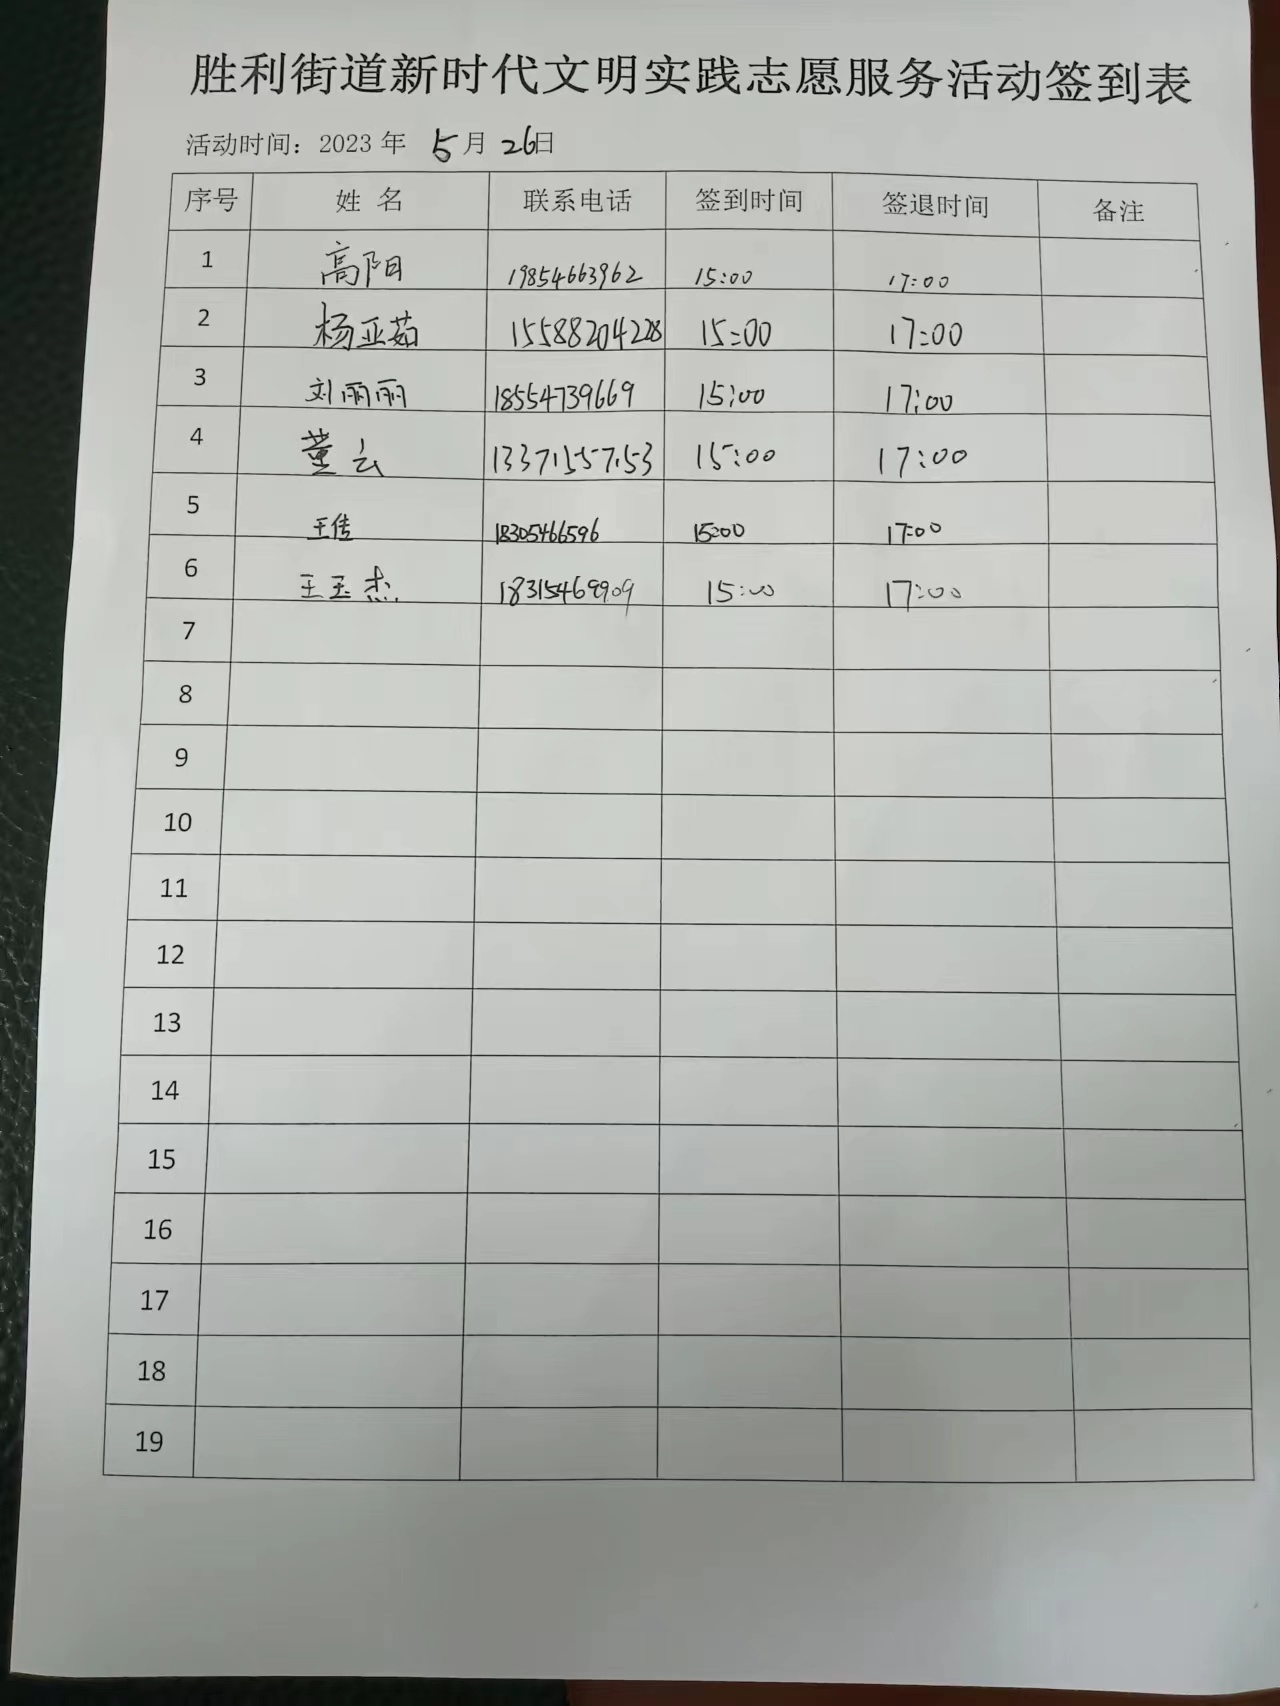 胜利街道新时代文明实践志愿服务活动签到表
活动时间：2023 年 5 月 26日
序号 姓 名 联系电话 签到时间 签退时间 备注
1 高阳 19854663962 15:00 17:00
2 杨亚茹 15588204228 15:00 17:00
3 刘丽丽 18554739669 15:00 17:00
4 董云 13371557153 15:00 17:00
5 王传 18305466596 15:00 17:00
6 王玉杰 15:00 17:00
7
8
9
10
11
12
13
14
15
16
17
18
19